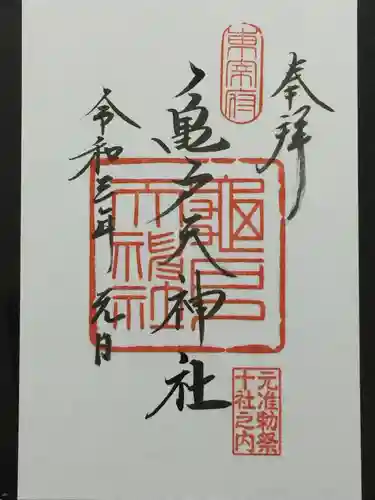 奉拝
東宰府
亀戸天神社
令和三年 元日
龜戸天神社
元准勅祭
十社之内